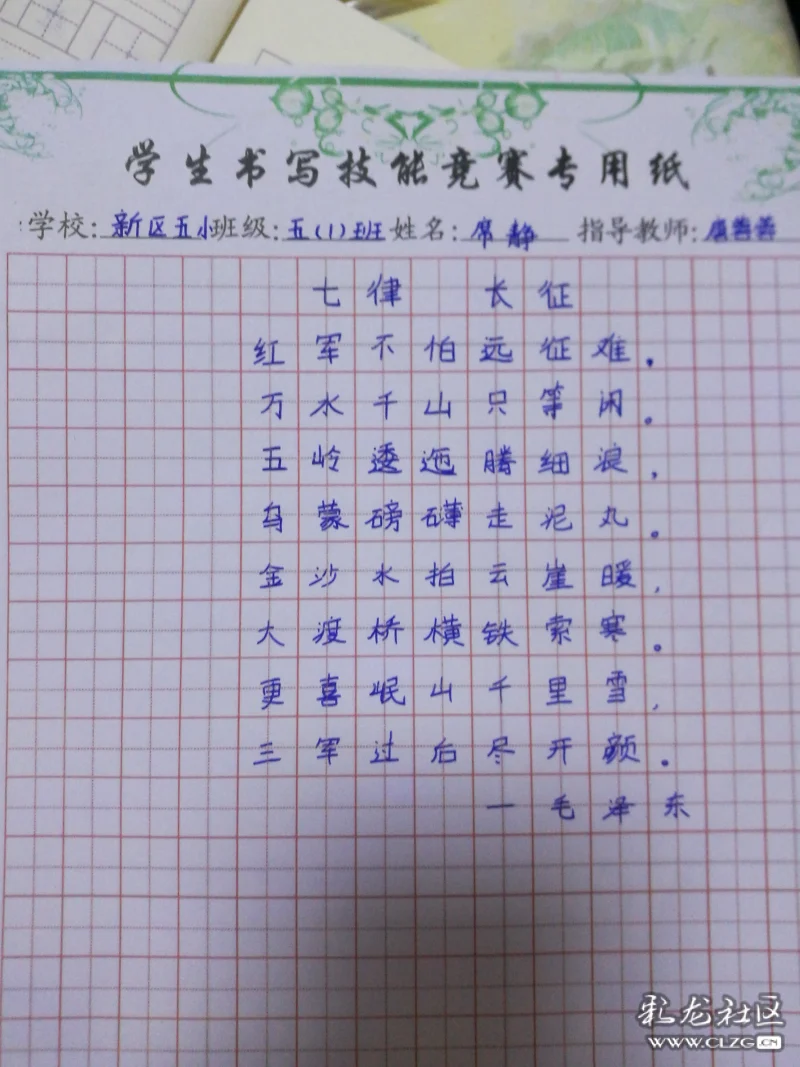 学生书写技能竞赛专用纸
学校: 新区五小 班级: 五(1)班 姓名: 席静 指导教师: 善善
七律 长征
红军不怕远征难。
万水千山只等闲。
五岭逶迤腾细浪,
乌蒙磅礴走泥丸。
金沙水拍云崖暖,
大渡桥横铁索寒。
更喜岷山千里雪,
三军过后尽开颜。
一毛泽东
彩龙社区
WWW.CLZG.CN